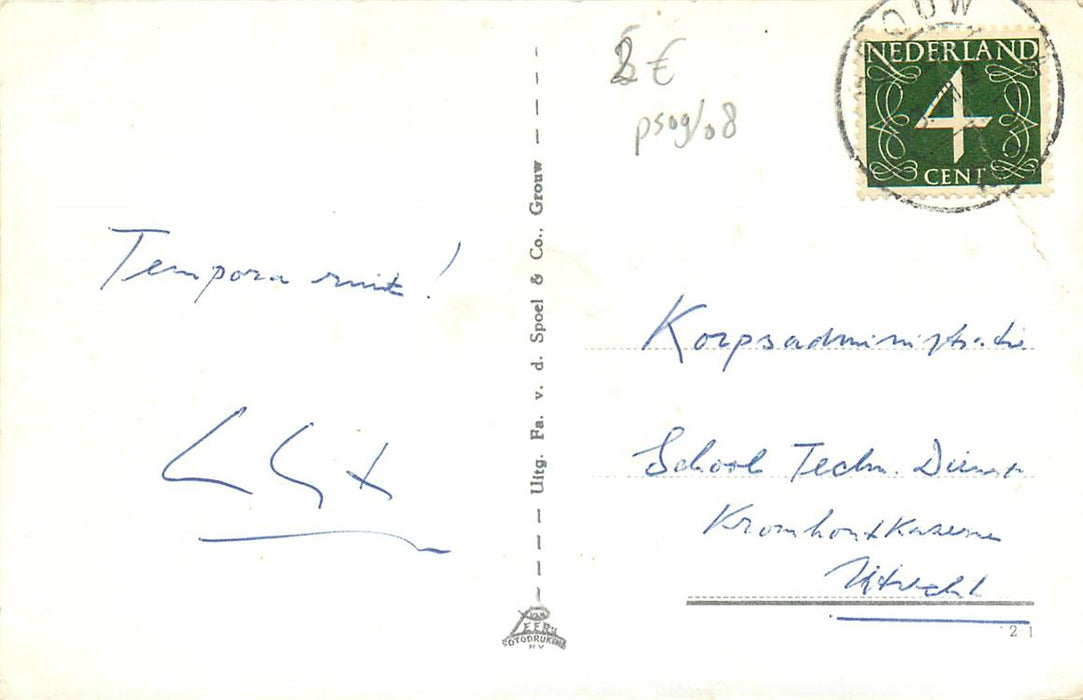 Tempora ruit!
Uitg. Fa. v. d. Spoel & Co., Grouw
VAN LEER'S
FOTODRUKIND
N V
€
psog/08
OUW
NEDERLAND
4
CENT
Korpsadministratie
School Techn. Dienst
Kromhoutkazerne
Utrecht
21